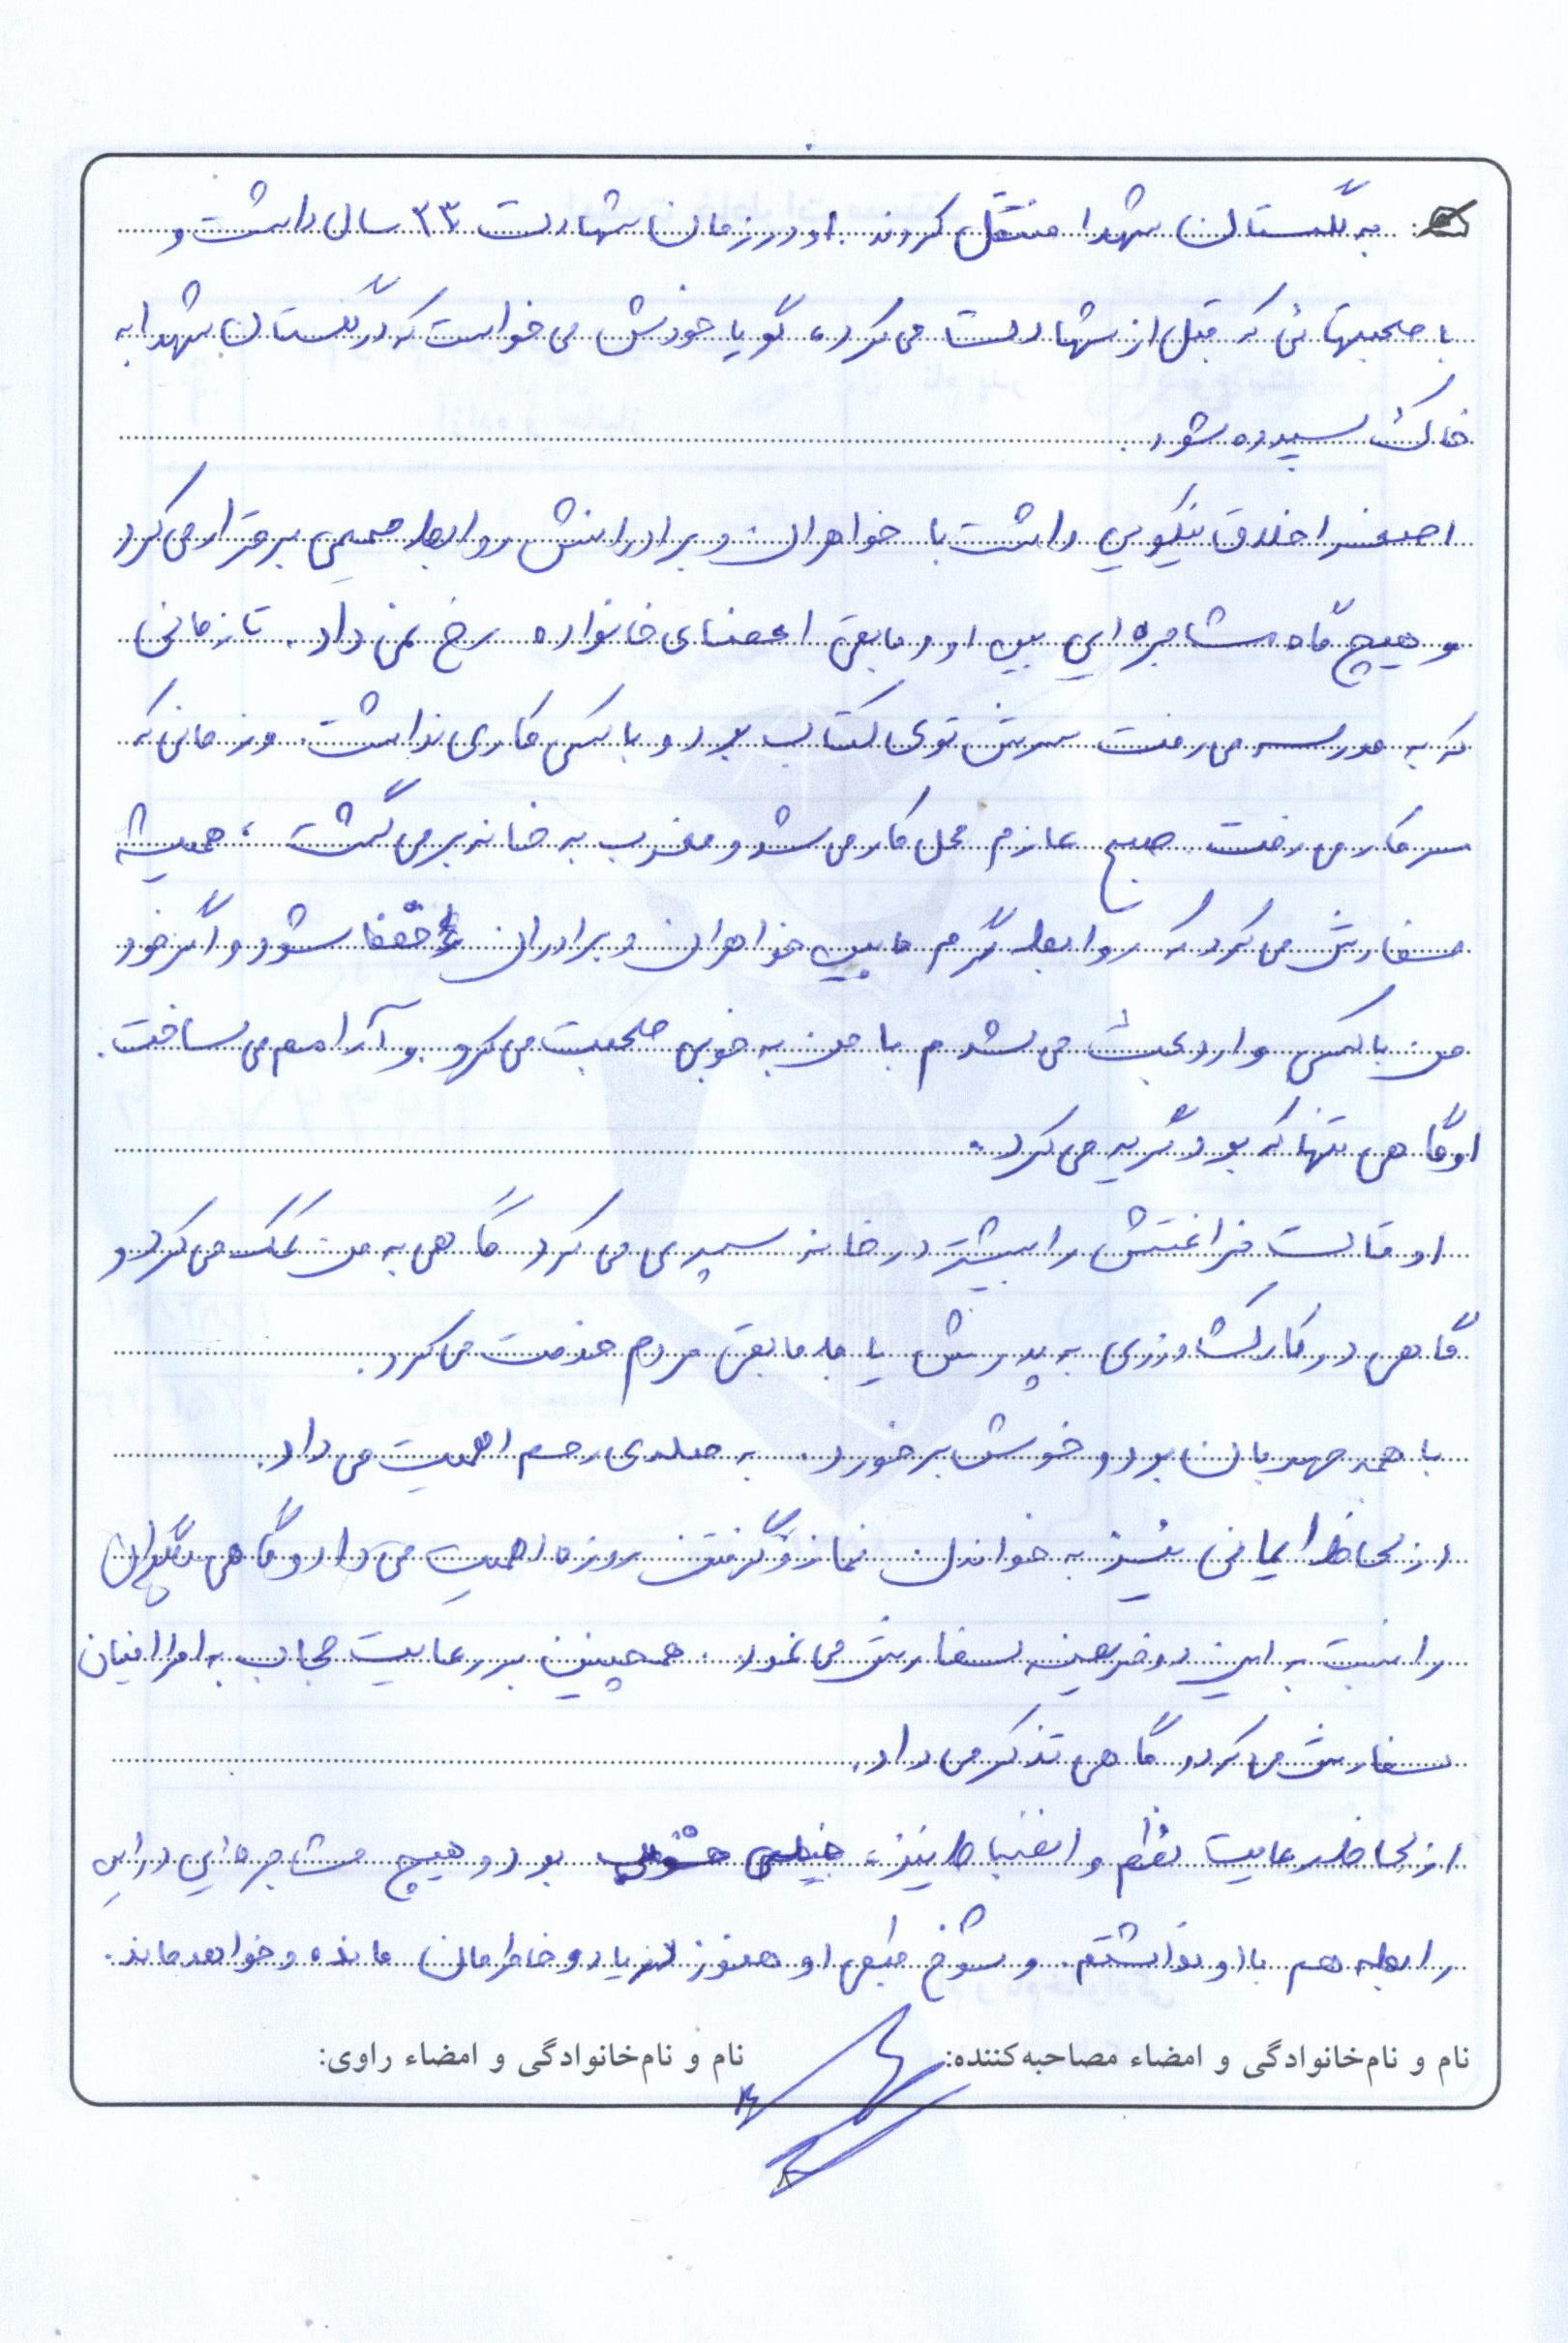 به گلستان شهدا منتقل کردند. او در زمان شهادت ۲۳ سال داشت و
با صحبتهائی که قبل از شهادت می کرد، گویا خودش می خواست که در گلستان شهدا به
خاک سپرده شود.
اصغر اخلاق نیکویی داشت با خواهران و برادرانش روابط صمیمی برقرار می کرد
و هیچ گاه مشاجره ایی بین او و مابقی اعضای خانواده رخ نمی داد. تا زمانی
که به مدرسه می رفت سرش توی کتاب بود و با کسی کاری نداشت. و زمانی که
سر کار می رفت صبح عازم محل کار می شد و مغرب به خانه بر می گشت، همیشه
سفارش می کرد که روابط گرم مابین خواهران و برادران حفظ شود و اگر خود
من با کسی وارد بحث می شدم با من به خوبی صحبت می کرد و آرامم می ساخت.
او گاهی تنها که بود گریه می کرد.
اوقات فراغتش را بیشتر در خانه سپری می کرد گاهی به من کمک می کرد و
گاهی در کار کشاورزی به پدرش یا به مابقی مردم خدمت می کرد.
با همه مهربان بود و خوش برخورد. به صله ی رحم اهمیت می داد.
از لحاظ ایمانی نیز به خواندن نماز و گرفتن روزه اهمیت می داد و گاهی دیگران
را نسبت به این دو فریضه سفارش می نمود. همچنین بر رعایت حجاب به اطرافیان
سفارش می کرد و گاهی تذکر می داد.
از لحاظ رعایت نظم و انضباط نیز، خیلی خوب بود و هیچ مشاجره ایی در این
رابطه هم با او نداشتم. و شوخ طبعی او هنوز در یاد و خاطرمان مانده و خواهد ماند.
نام و نام‌خانوادگی و امضاء مصاحبه‌کننده: نام و نام‌خانوادگی و امضاء راوی:
۸